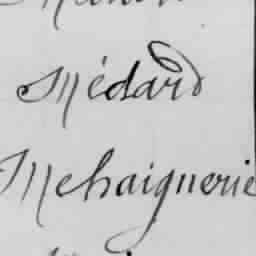 Médard
Mehaignerie